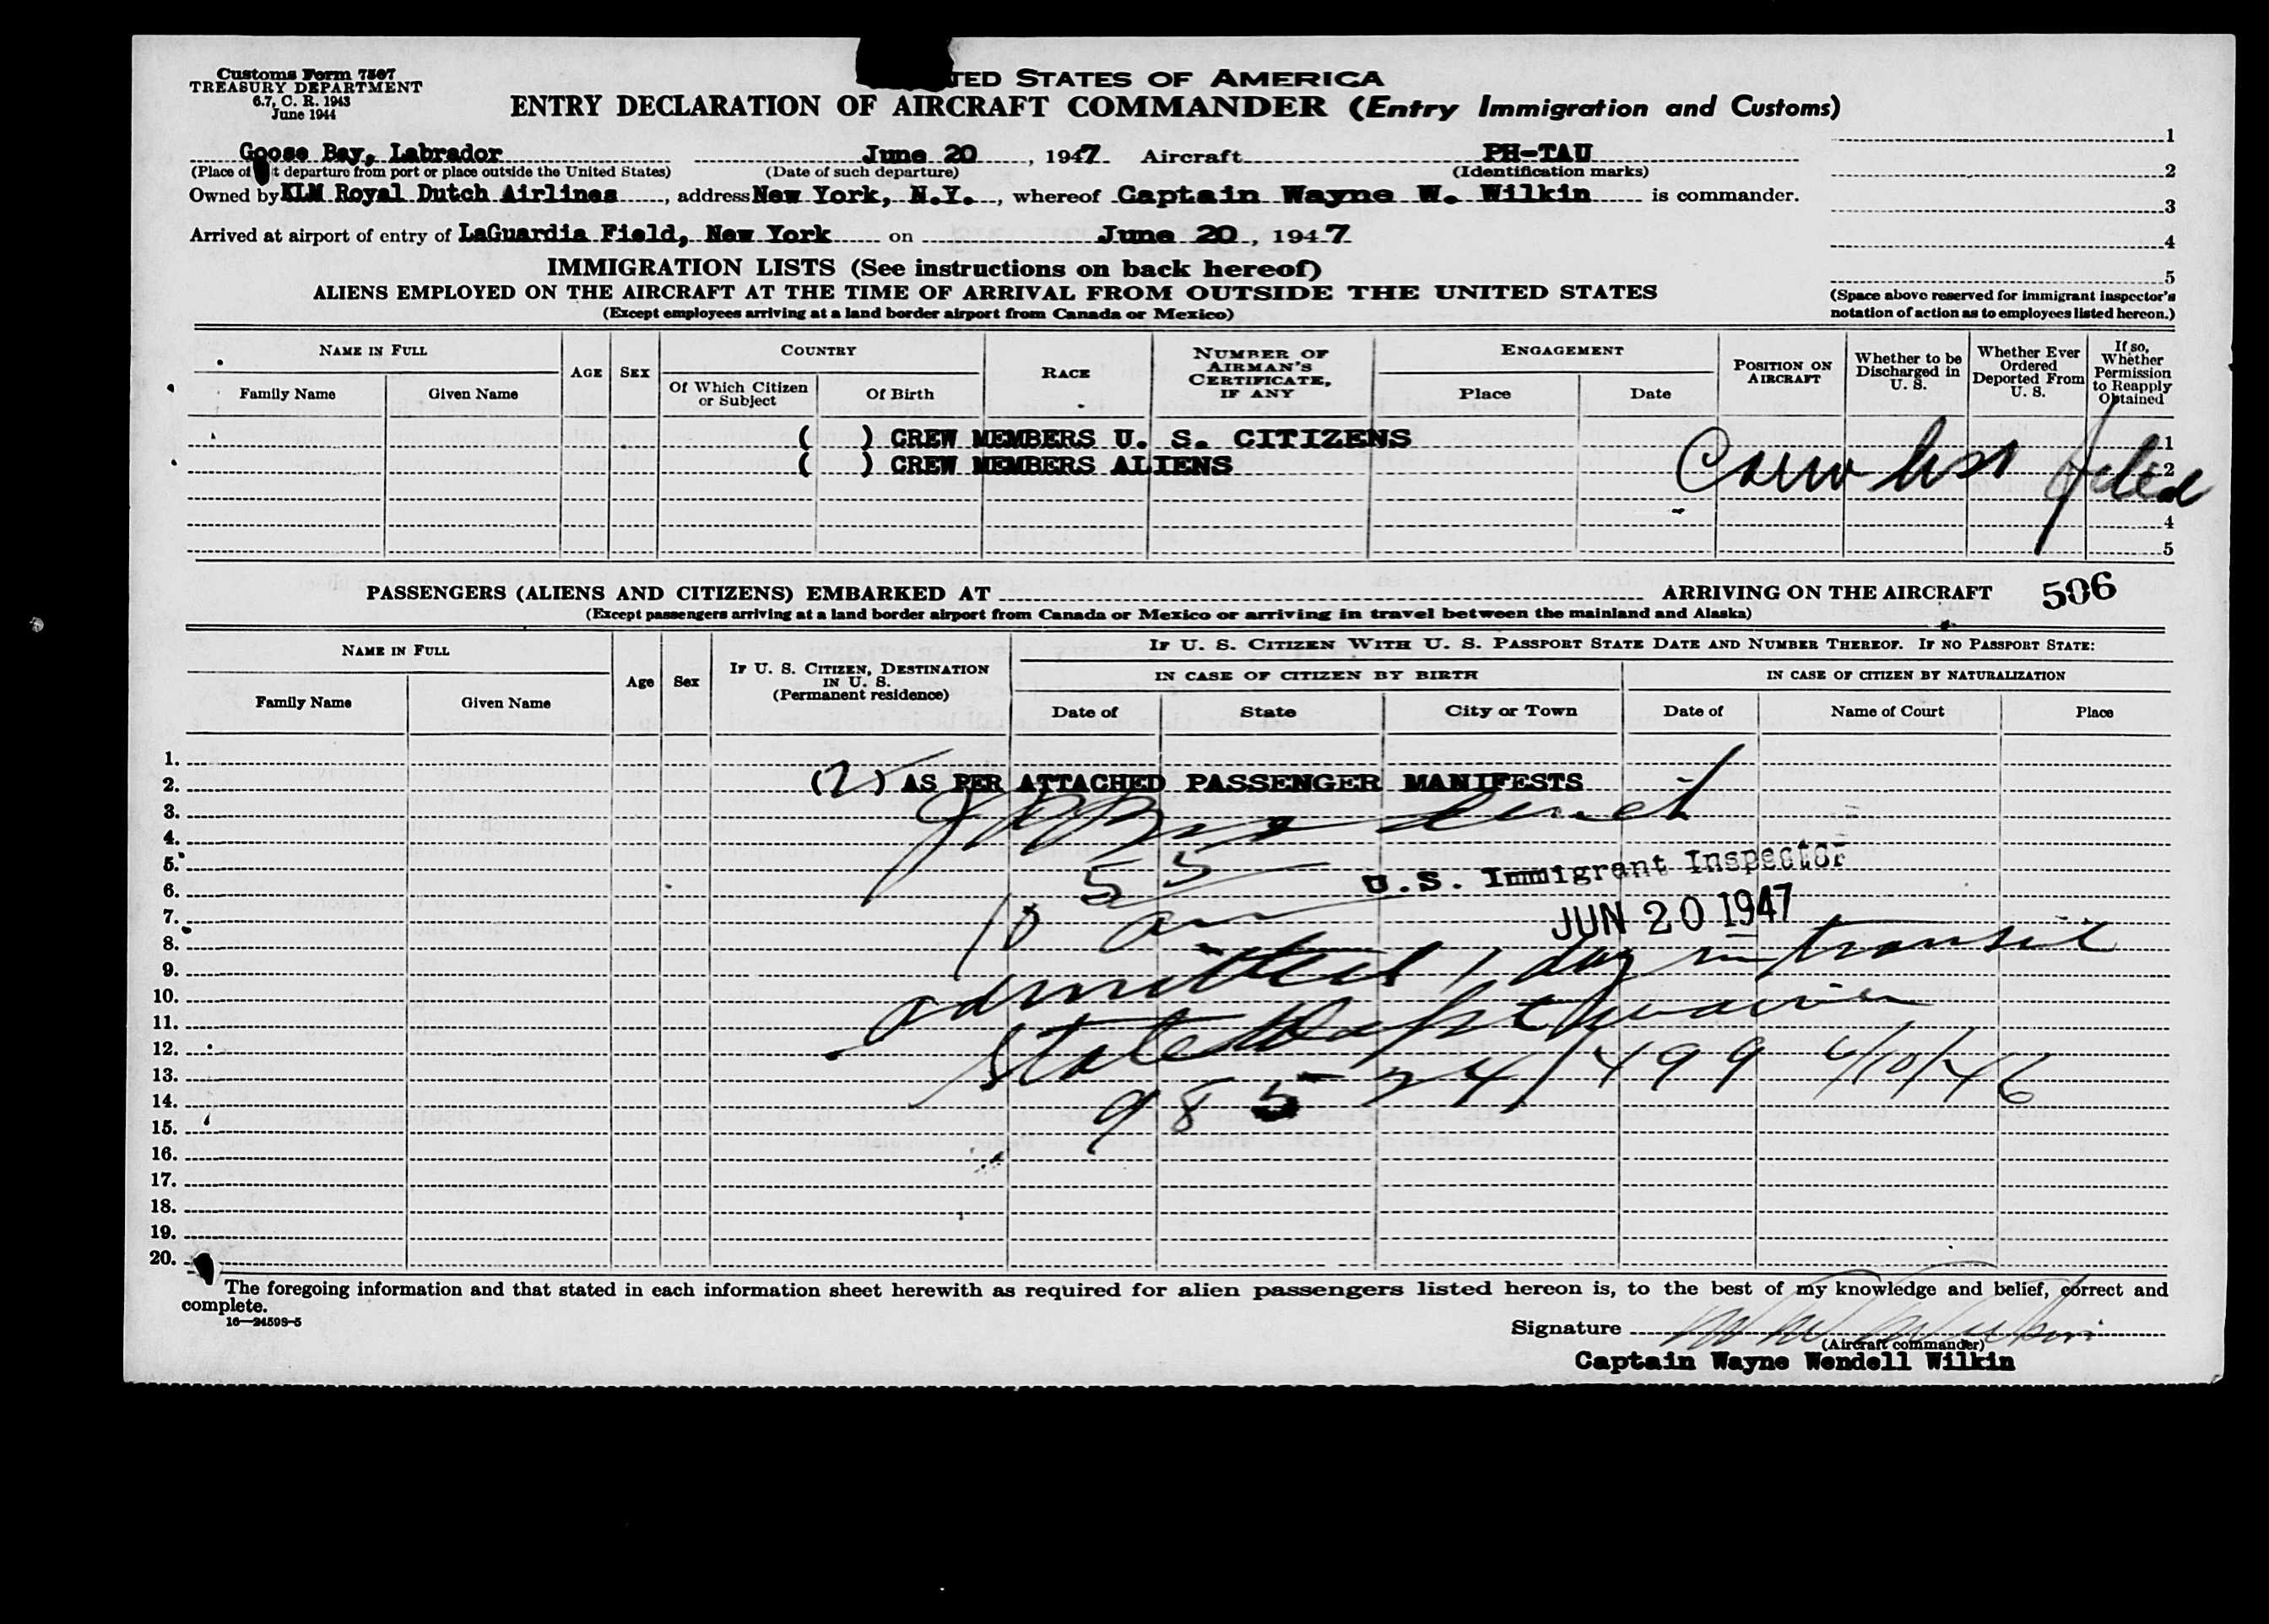 Customs Form 7507
TREASURY DEPARTMENT
6.7, C. R. 1943
June 1944
TED STATES OF AMERICA
ENTRY DECLARATION OF AIRCRAFT COMMANDER (Entry Immigration and Customs)
Goose Bay, Labrador June 20, 1947 Aircraft PH-TAU
(Place of t departure from port or place outside the United States) (Date of such departure) (Identification marks)
Owned by KLM Royal Dutch Airlines, address New York, N.Y., whereof Captain Wayne W. Wilkin is commander.
Arrived at airport of entry of LaGuardia Field, New York on June 20, 1947
1
2
3
4
5
(Space above reserved for immigrant inspector's
notation of action as to employees listed hereon.)
IMMIGRATION LISTS (See instructions on back hereof)
ALIENS EMPLOYED ON THE AIRCRAFT AT THE TIME OF ARRIVAL FROM OUTSIDE THE UNITED STATES
(Except employees arriving at a land border airport from Canada or Mexico)
NAME IN FULL
Family Name
Given Name
AGE
SEX
COUNTRY
Of Which Citizen
or Subject
Of Birth
RACE
NUMBER OF
AIRMAN'S
CERTIFICATE,
IF ANY
ENGAGEMENT
Place
Date
POSITION ON
AIRCRAFT
Whether to be
Discharged in
U. S.
Whether Ever
Ordered
Deported From
U. S.
If so,
Whether
Permission
to Reapply
Obtained
( ) CREW MEMBERS U. S. CITIZENS 1
( ) CREW MEMBERS ALIENS 2
Crew list filed
4
5
PASSENGERS (ALIENS AND CITIZENS) EMBARKED AT ARRIVING ON THE AIRCRAFT 506
(Except passengers arriving at a land border airport from Canada or Mexico or arriving in travel between the mainland and Alaska)
NAME IN FULL
Family Name
Given Name
Age
Sex
IF U. S. CITIZEN, DESTINATION
IN U. S.
(Permanent residence)
IF U. S. CITIZEN WITH U. S. PASSPORT STATE DATE AND NUMBER THEREOF. IF NO PASSPORT STATE:
IN CASE OF CITIZEN BY BIRTH
Date of
State
City or Town
IN CASE OF CITIZEN BY NATURALIZATION
Date of
Name of Court
Place
1.
2. (2) AS PER ATTACHED PASSENGER MANIFESTS
3.
4.
5. 55 U.S. Immigrant Inspector
6.
7. 10 a JUN 20 1947
8.
9. admitted 1 day in transit
10.
11. State Dept waiver
12.
13. 98524/499 6/10/46
14.
15.
16.
17.
18.
19.
20.
The foregoing information and that stated in each information sheet herewith as required for alien passengers listed hereon is, to the best of my knowledge and belief, correct and
complete.
16—24598-5
Signature
(Aircraft commander)
Captain Wayne Wendell Wilkin